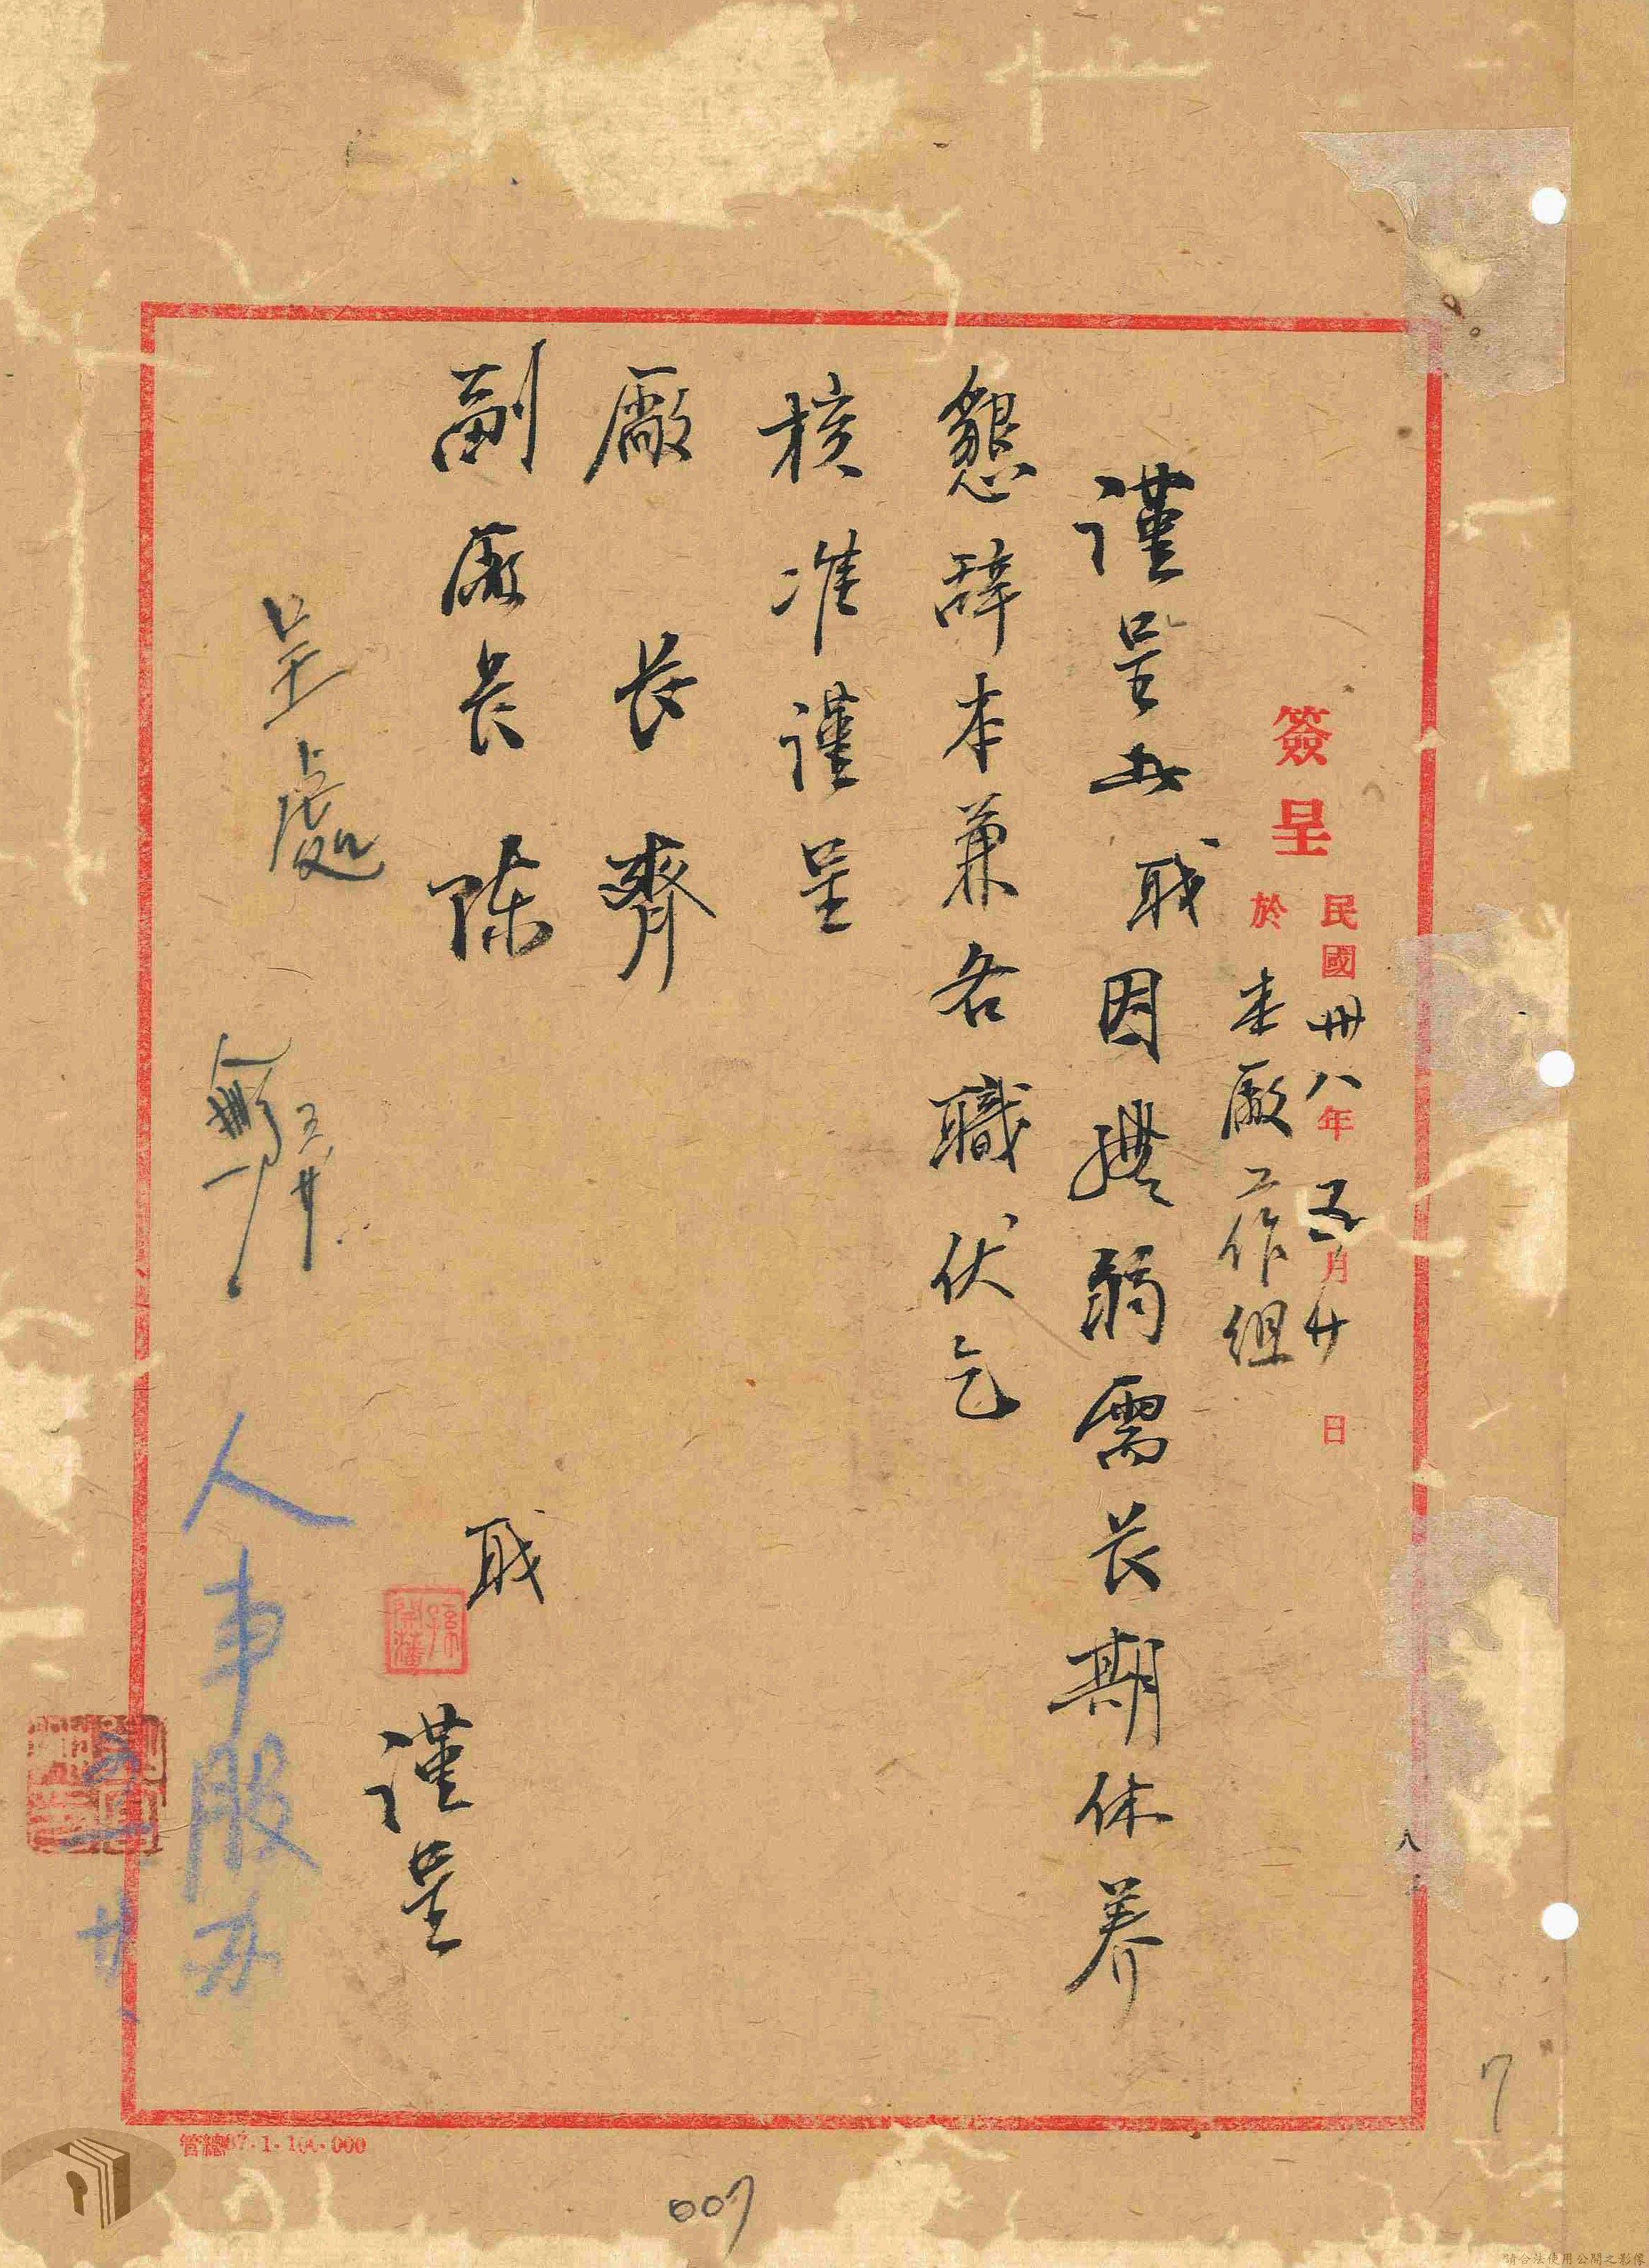 簽呈
民國卅八年五月廿日
於 本廠工作組
謹呈者職因體弱需長期休养
懇辞本兼各職伏乞
核准謹呈
廠長齊
副廠長陳
職
謹呈
呈處
五、廿
人事股办
廿
管總37·1·100·000
007
7
八
請合法使用公開之影像